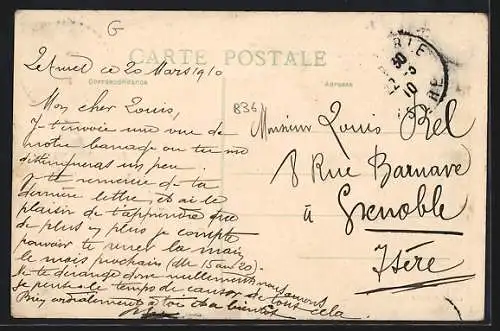 G
CARTE POSTALE
ce 20 Mars 1910
Correspondance
Adresse
836
Mon cher Louis,
Je t'envoie une vue de
notre
distingueras un peu
Je te remercie de ta
dernière lettre, et ai le
plaisir de t'apprendre que
de plus en plus je compte
pouvoir te serrer la main
le mois prochain (du 15 au 20).
Ne te dérange donc nullement, nous aurons
je pense le temps de causer de tout cela.
Bien cordialement à toi et à bientôt
Monsieur Louis Rel
8 Rue Barnave
à
Grenoble
Isère